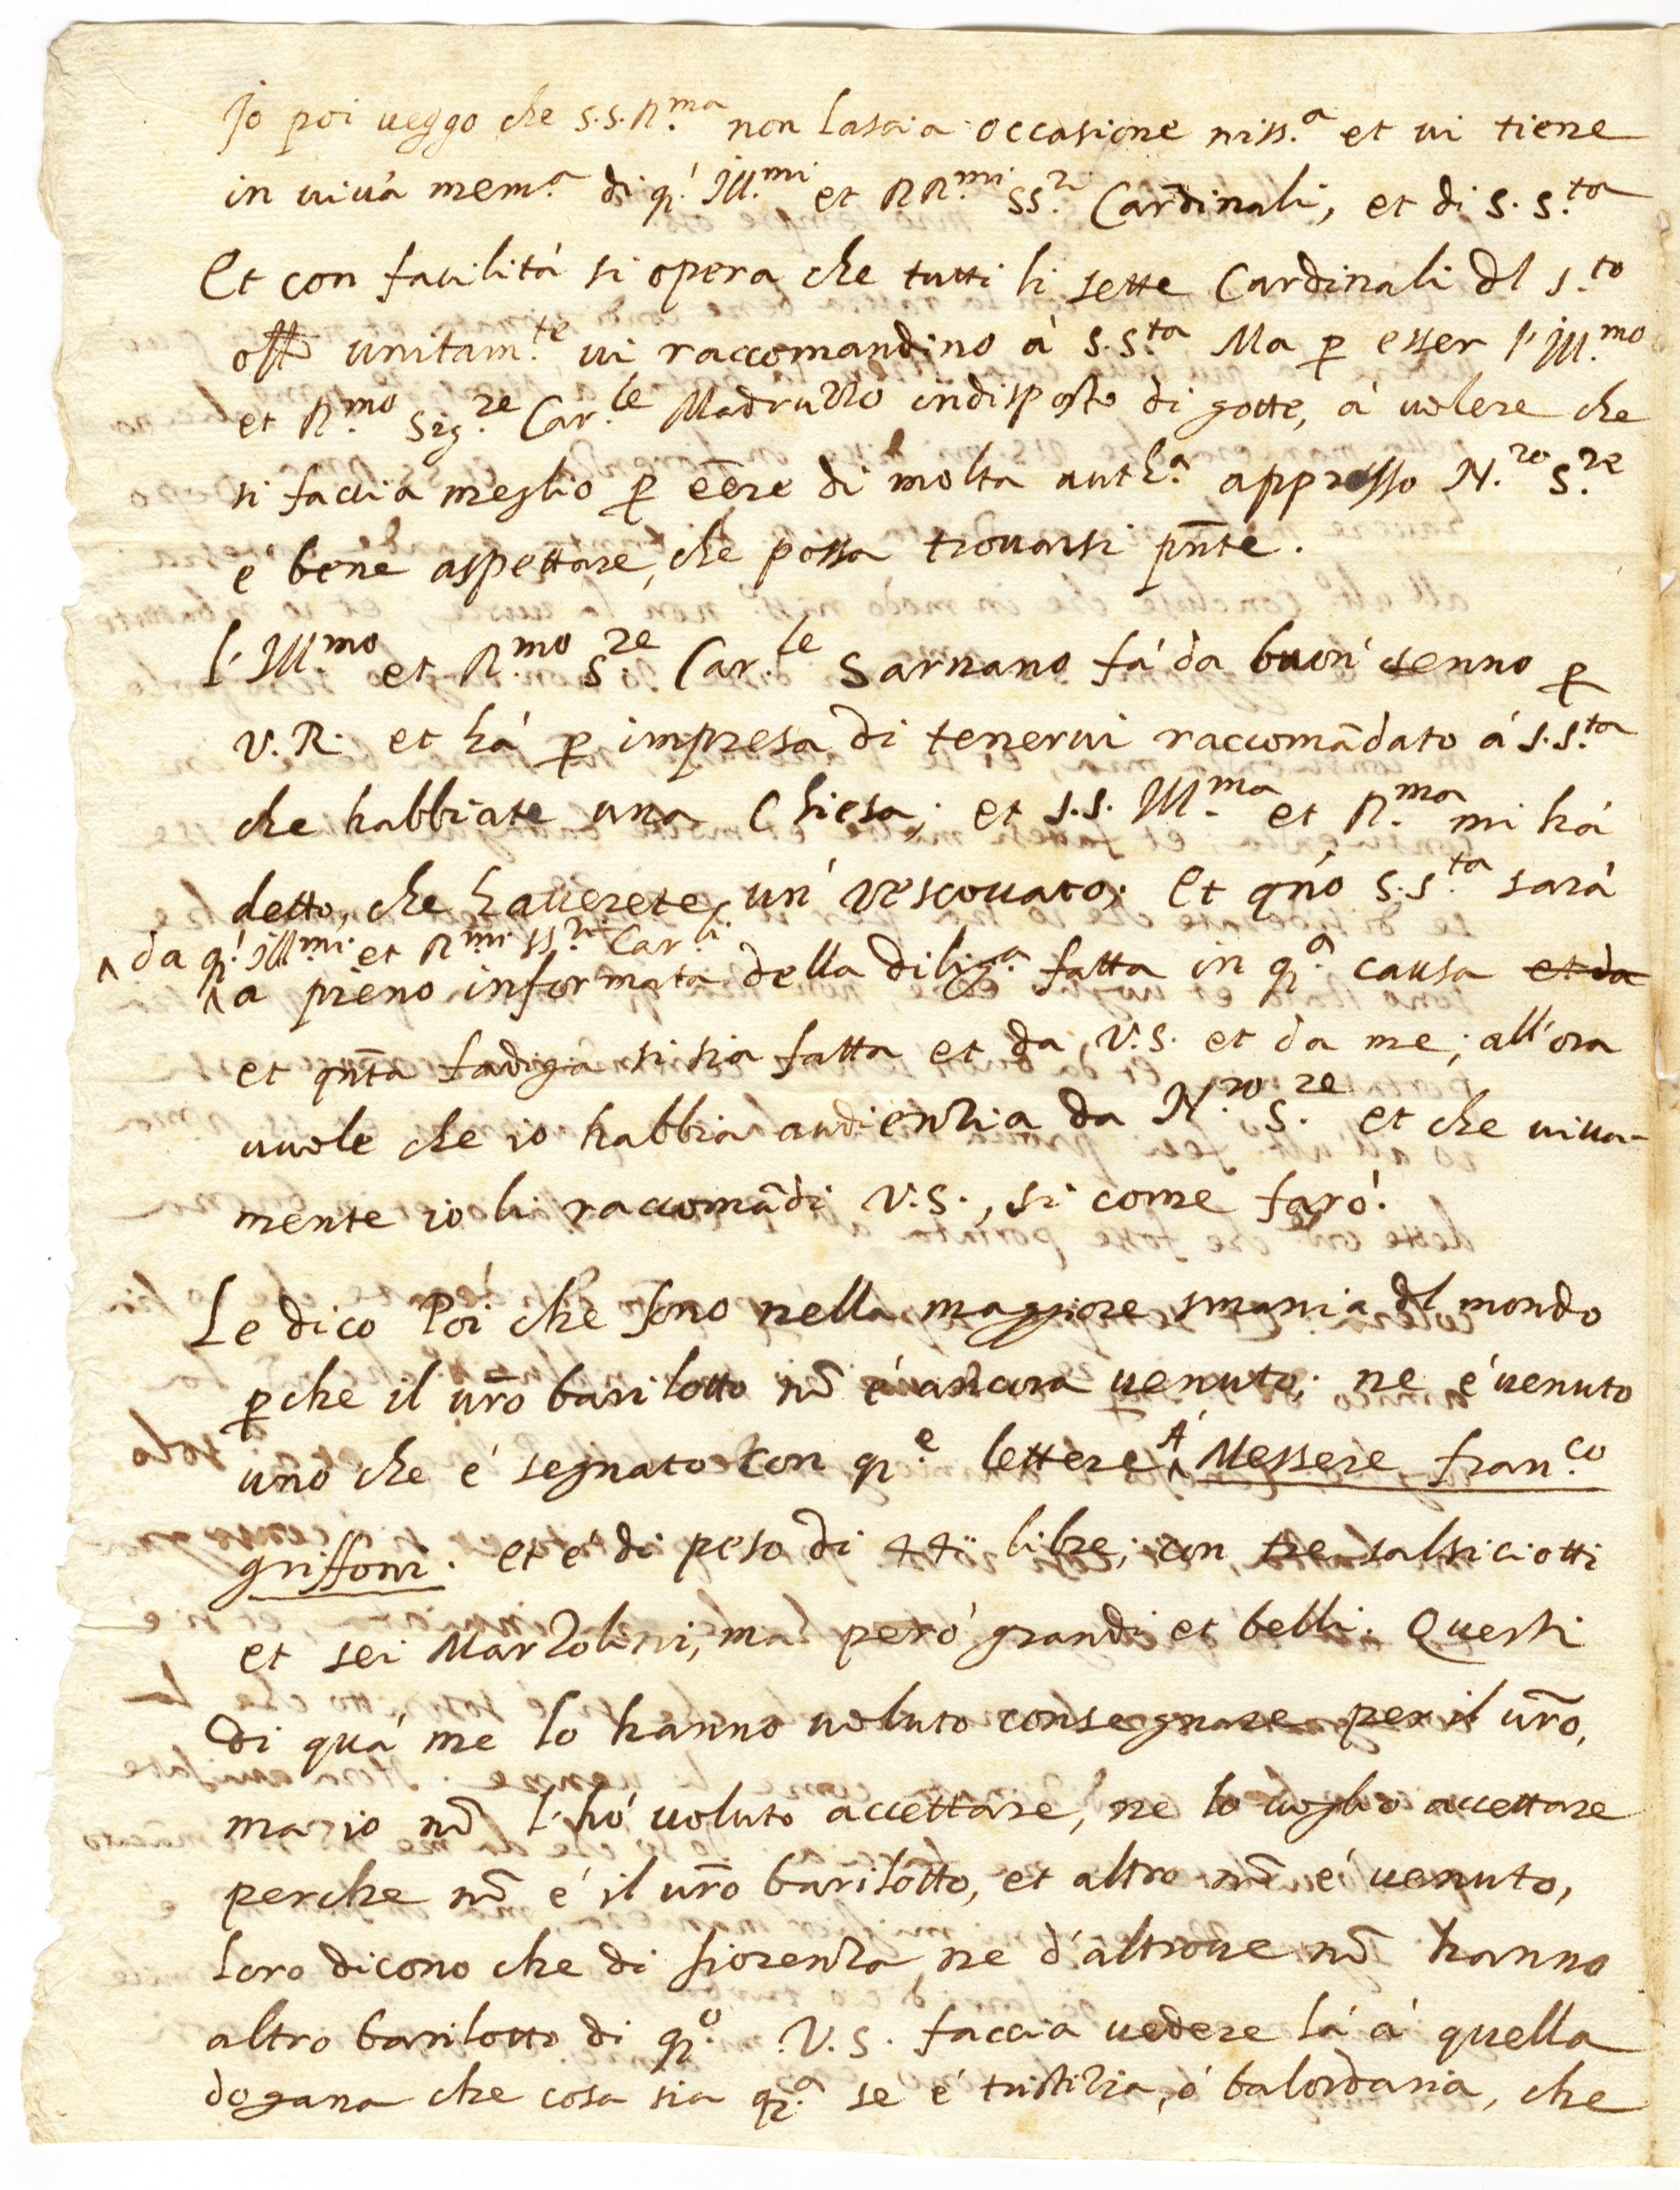 Jo poi ueggo che S.S.R.ma non lascia occasione niss.a et ui tiene
in uiua mem.a di q.i Ill.mi et RR.mi SS.ri Cardinali, et di S. S.ta
Et con facilità si opera che tutti li sette Cardinali dl S.to
off.o unitam.te ui raccomandino à S. S.ta Ma p esser l'Ill.mo
et R.mo Sig.re Car.le Madruzzo indisposto di gotte, à uolere che
si faccia meglio p eēre di molta auth.a appresso N.ro S.re
e bene aspettare, che possa trouarsi pn̄te.
L'Ill.mo et R.mo S.re Car.le Sarnano fà da buon senno p
V.R. et hà p impresa di tenerui raccomādato à S. S.ta
che habbiate una Chiesa; et S.S. Ill.ma et R.ma mi hà
detto, che hauerete un' Vescouato; Et qn̄o S. S.ta sarà
^ da q.i Ill.mi et R.mi SS.ri Car.li
^ a pieno informata della dilig.a fatta in q.a causa et da
et qn̄ta fadiga si sia fatta et da V.S. et da me; all'ora
uuole che io habbia audienzia da N.ro S.re et che uiua-
mente io li raccomādi V.S., si come farò.
Le dico Poi che sono nella maggiore smania dl mondo
pche il ur̄o barilotto nō è ancora uenuto; ne è uenuto
uno che è segnato con q.e lettere ^A Messere Fran.co
griffoni. et è di peso di 44 libre; con tre salsiciotti
et sei Marzolini, ma però grandi et belli. Questi
di quà me lo hanno uoluto consegnare per il ur̄o,
ma io nō l'hò uoluto accettare, ne lo uoglio accettare
perche nō è il ur̄o barilotto, et altro nō è uenuto,
loro dicono che di fiorenza, ne d'altroue nō hanno
altro barilotto di q.o V.S. faccia uedere là à quella
dogana che cosa sia q.a se è tristizia, ò balordaria, che